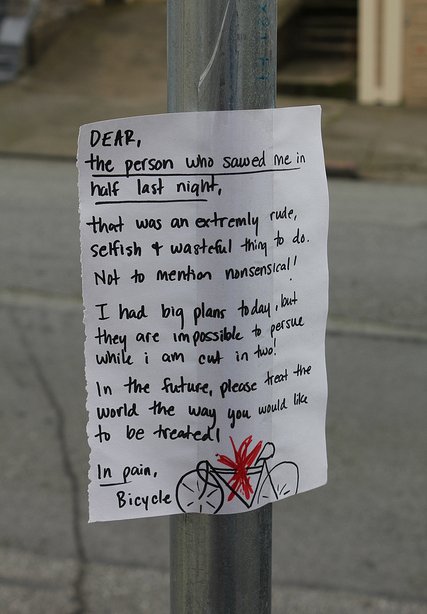 DEAR,
the person who sawed me in
half last night,
that was an extremly rude,
selfish & wasteful thing to do.
Not to mention nonsensical!
I had big plans today, but
they are impossible to persue
while i am cut in two!
In the future, please treat the
world the way you would like
to be treated!
In pain,
Bicycle